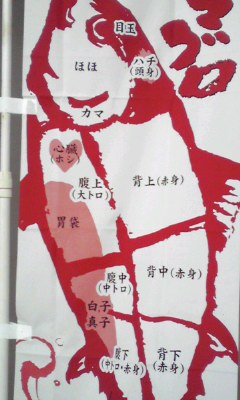 マグロ
目玉
ほほ
ハチ
(頭身)
カマ
心臓
(ホシ)
腹上
(大トロ)
背上(赤身)
胃袋
腹中
(中トロ)
背中(赤身)
白子
真子
腹下
(中トロ・赤身)
背下
(赤身)